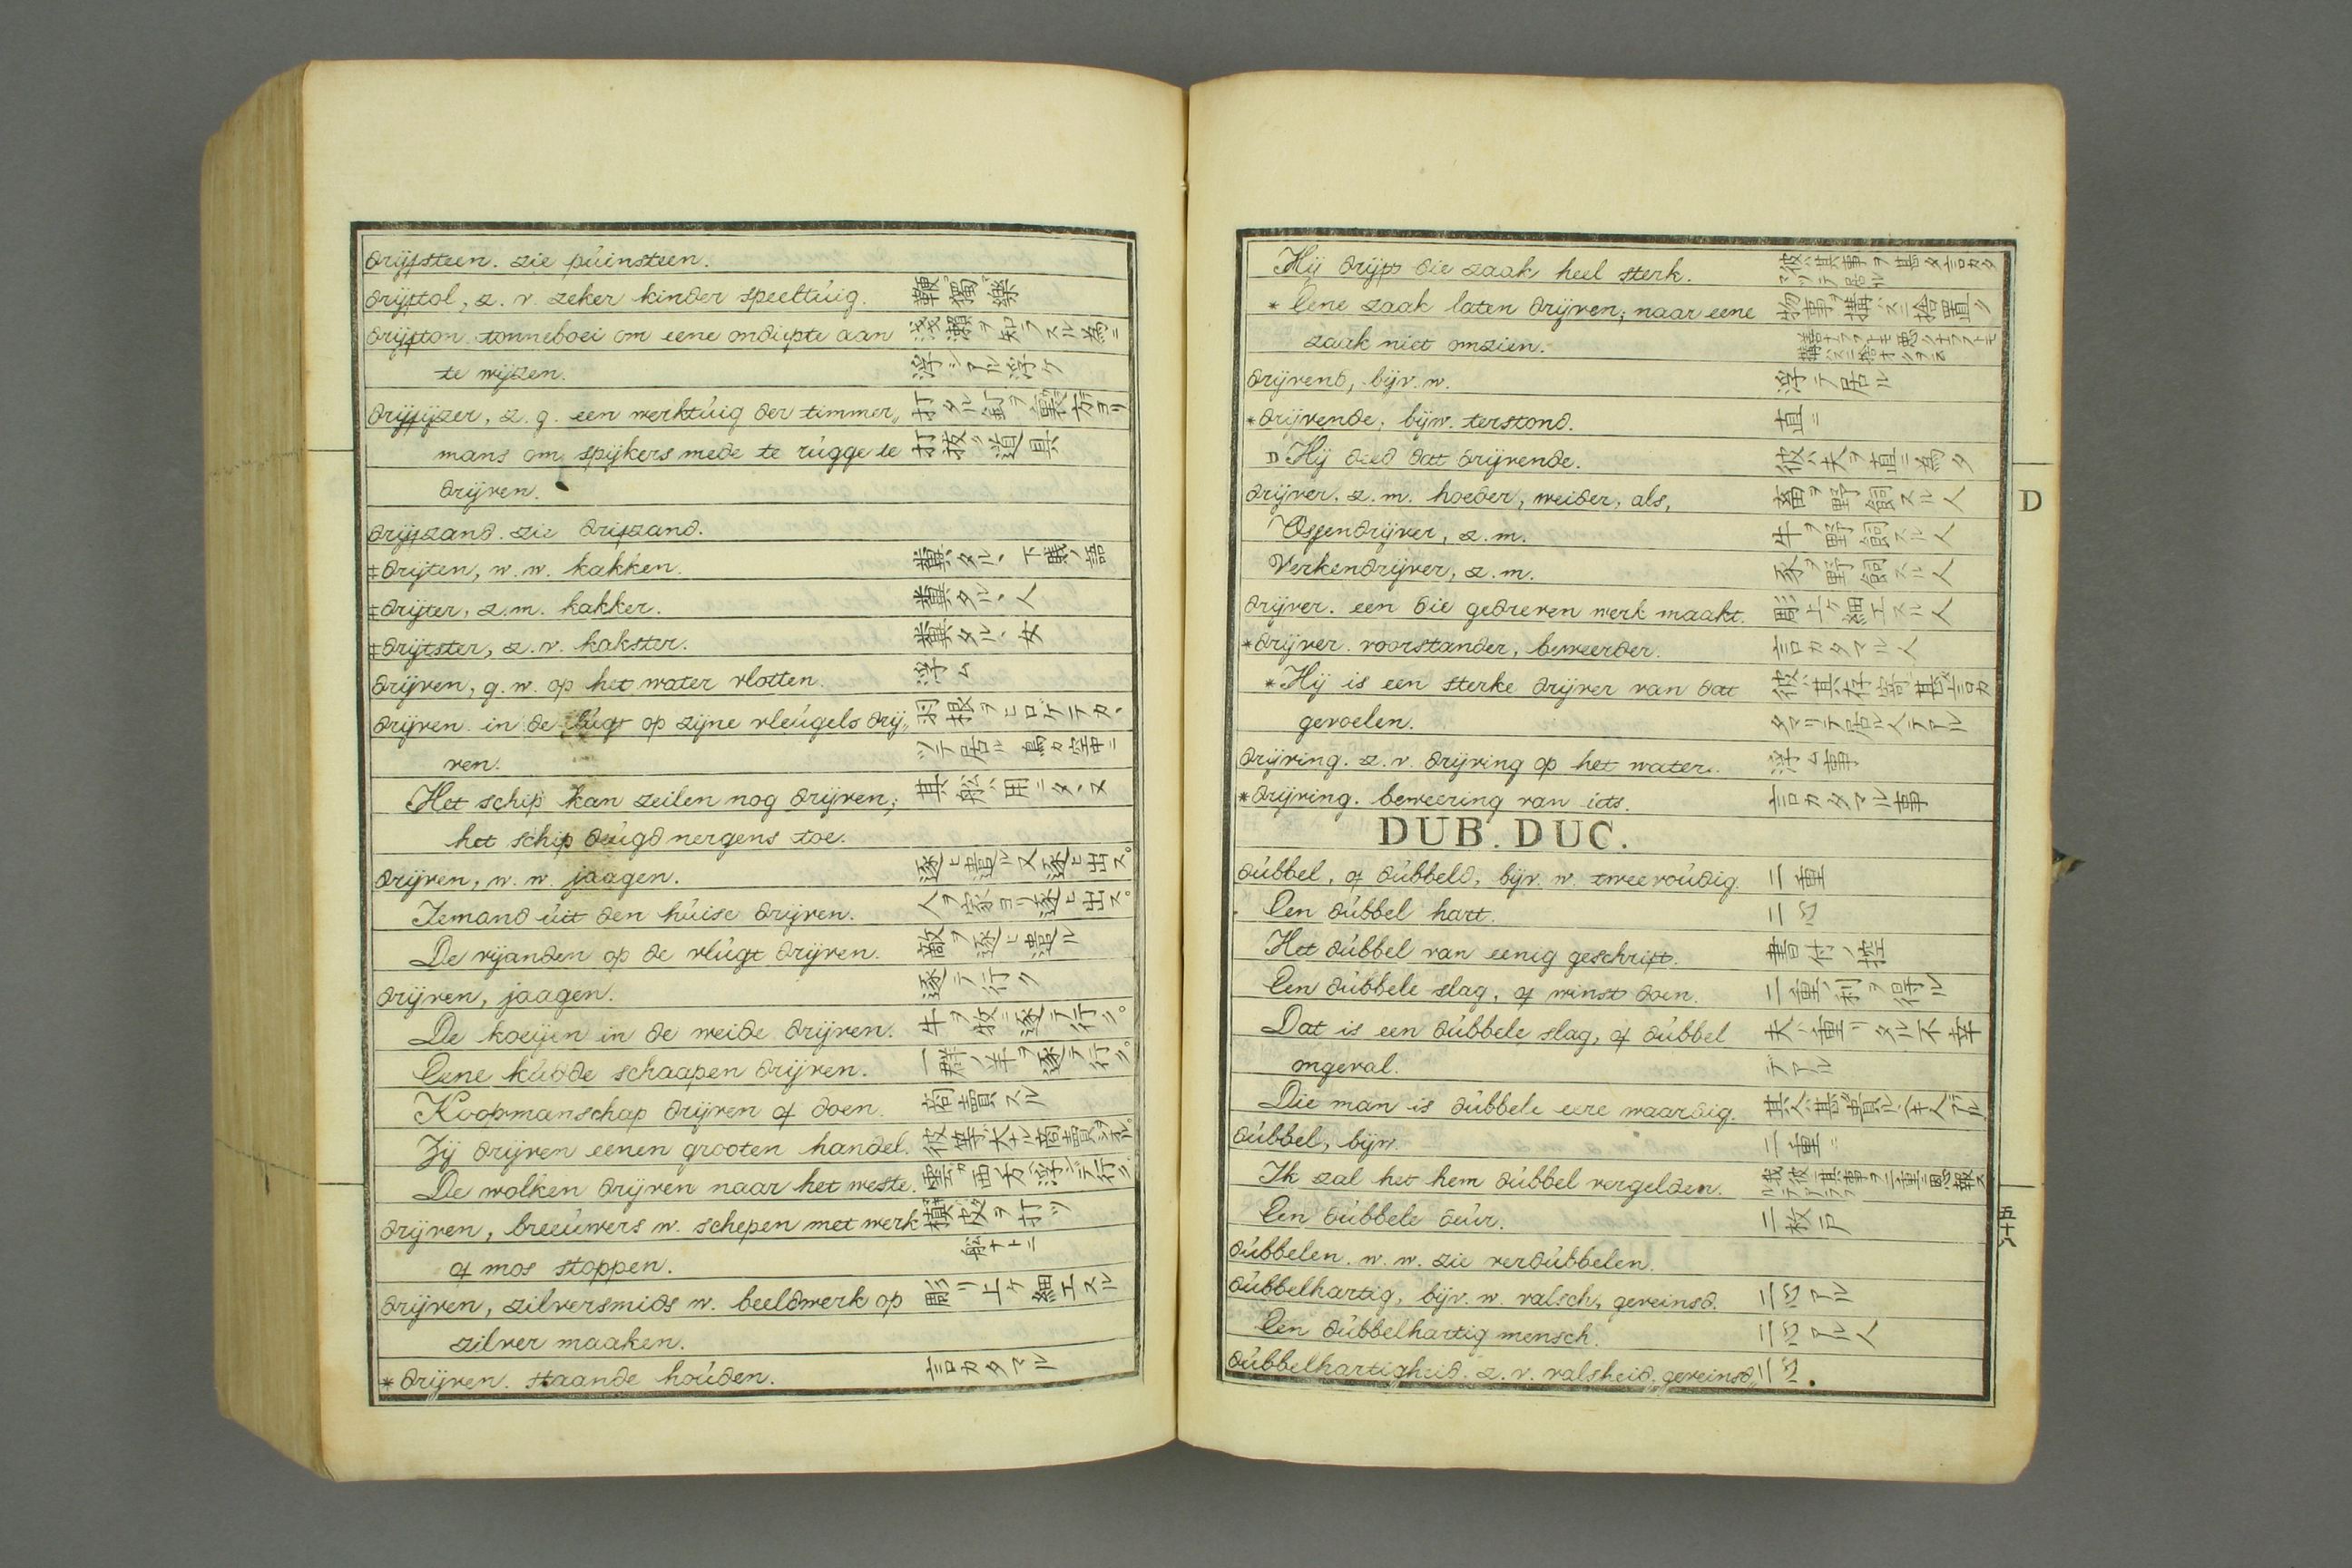 drijfsteen. zie púinsteen.
drijftol, z. v. zeker kinder speeltúig. 鞭獨樂
drijfton. tonneboei om eene ondiepte aan 浅瀬ヲ知ラスル為ニ
te wijzen. 浮シアル浮ケ
drijfijzer, z. g. een werktúig der timmer„ 打タル釘ヲ裏ノ方ヨリ
mans om spijkers mede te rúgge te 打抜ク道具
drijven.
drijfzand. zie drifzand.
‡drijten, w. w. kakken. 糞タルヽ下賎ノ語
‡drijter, z. m. kakker. 糞タルヽ人
‡drijtster, z. v. kakster. 糞タルヽ女
drijven, g. w. op het water vlotten. 浮ム
drijven. in de lúgt op zijne vleúgels drij„ 羽根ヲヒロゲテカヽ
ven. ツテ居ル 鳥カ空中ニ
Het schip kan zeilen nog drijven; 其舩ハ用ニタヽヌ
het schip deúgd nergens toe.
drijven, w. w. jaagen. 逐ヒ遣ル又逐ヒ出ス。
Iemand úit den húise drijven. 人ヲ家ヨリ逐ヒ出ス。
De vijanden op de vlúgt drijven. 敵ヲ逐ヒ遣ル
drijven, jaagen. 逐テ行ク
De koeijen in de weide drijven. 牛ヲ牧ニ逐テ行ク。
Eene kúdde schaapen drijven. 一群ノ羊ヲ逐テ行ク。
Koopmanschap drijven of doen. 商賣スル
Zij drijven eenen grooten handel. 彼等ハ大ナル商賣ヲスル。
De wolken drijven naar het weste. 雲カ西ノ方ニ浮ンテ行ク。
drijven, breeúwers w. schepen met werk 槙皮ヲ打ツ
of mos stoppen. 舩ナトニ
drijven, zilversmids w. beeldwerk op 彫リ上ケ細工スル
zilver maaken.
*drijven. staande hoúden. 言カタマル
Hij drijft die zaak heel sterk. 彼ハ其事ヲ甚タ言カタマツテ居ル
* Eene zaak laten drijven; naar eene 物事ヲ構ハスニ捨置ク
zaak niet omzien.
drijvend, bijv. w. 浮テ居ル
*drijvende, bijw. terstond. 直ニ
D Hij deed dat drijvende. 彼ハ夫ヲ直ニ為タ
drijver. z. m. hoeder, weider, als, 畜ヲ野飼スル人
Ossendrijver, z. m. 牛ヲ野飼スル人
Verkendrijver, z. m. 豕ヲ野飼スル人
drijver. een die gedreven werk maakt. 彫上ケ細工スル人
*drijver. voorstander, beweerder. 言カタマル人
*Hij is een sterke drijver van dat 彼ハ其存寄ヲ甚タ言カ
gevoelen. タマリテ居ル人テアル
drijving. z. v. drijving op het water. 浮ム事
*drijving. beweering van iets. 言カタマル事
DUB. DUC.
dúbbel, of dúbbeld, bijv. w. tweevoúdig. 二重
Een dúbbel hart. 二心
Het dúbbel van eenig geschrift. 書付ノ控
Een dúbbele slag, of winst doen. 二重ノ利ヲ得ル
Dat is een dúbbele slag, of dúbbel 夫ハ重リタル不幸
ongeval. テアル
Die man is dúbbele eere waardig. 其人ハ甚タ貴ルヘキ人テアル
dúbbel, bijw. 二重ニ
Ik zal het hem dúbbel vergelden. 我彼ニ其事ヲ二重ニ恩報スルテアラフ
Een dúbbele deúr. 二枚戸
dúbbelen. w. w. zie verdúbbelen.
dúbbelhartig, bijv. w. valsch, geveinsd. 二心アル
Een dúbbelhartig mensch. 二心アル人
dúbbelhartigheid. z. v. valsheid, geveinsd„ 二心。
D
五十八